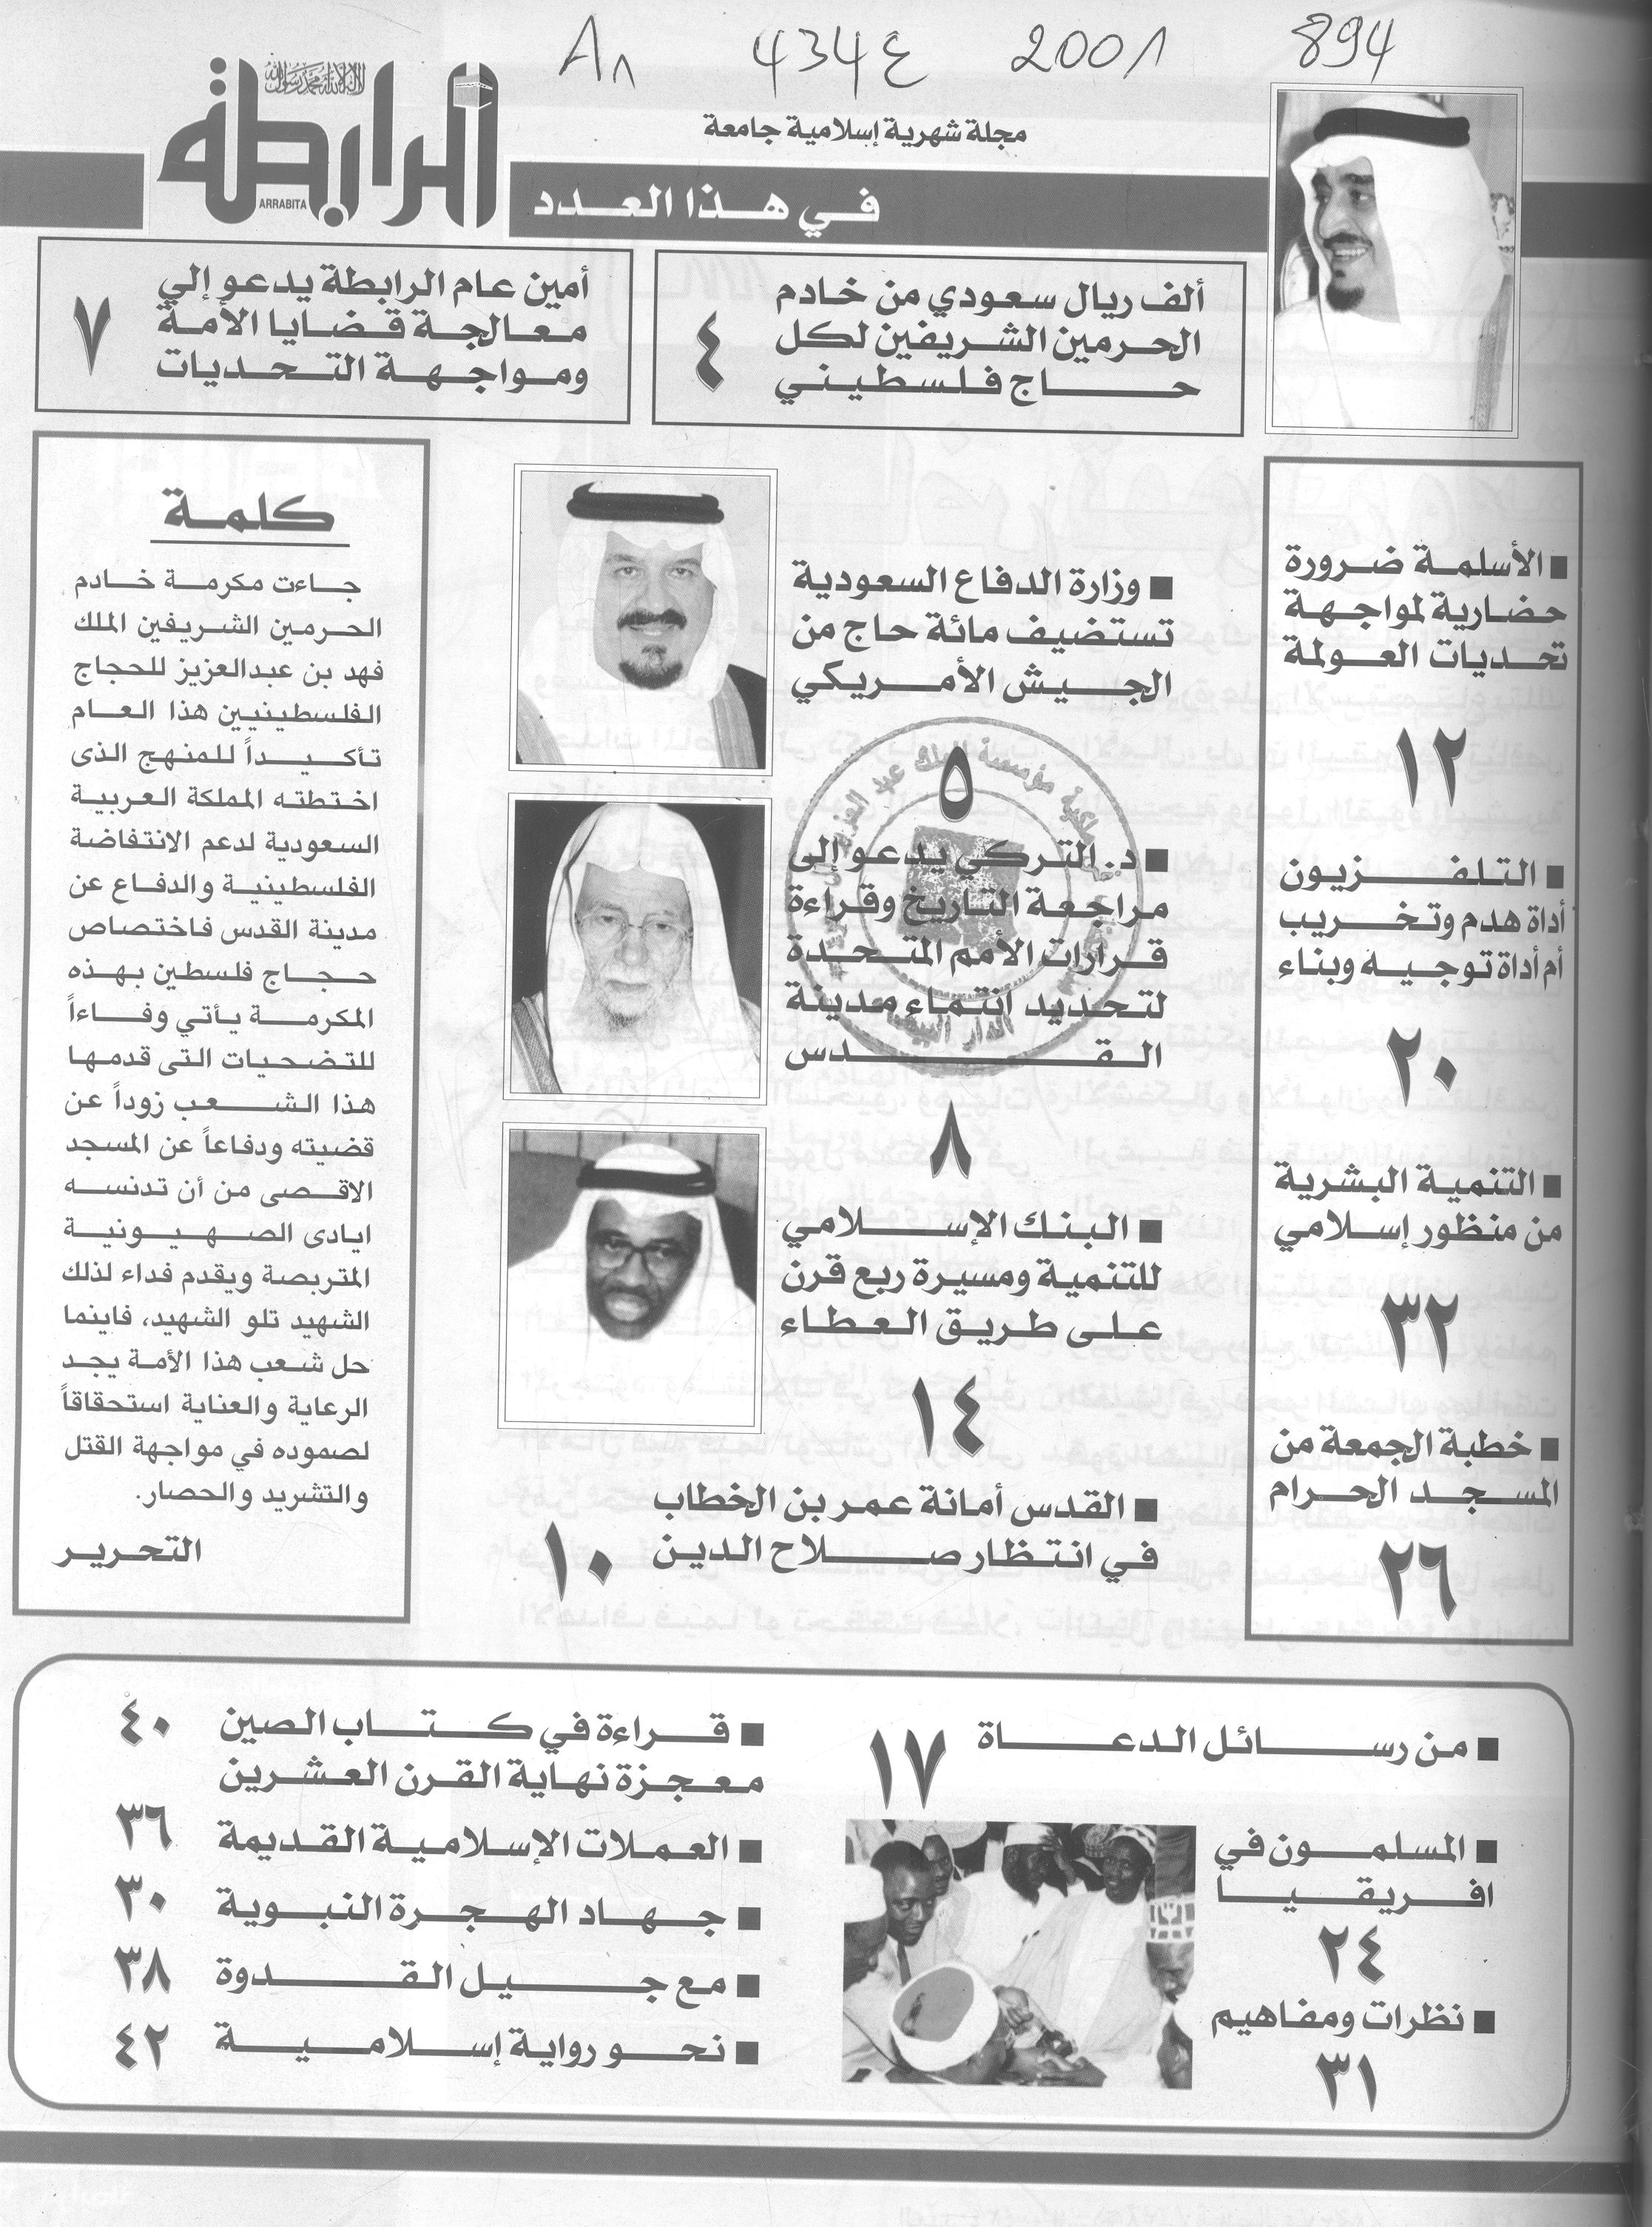 A٨ 434٤ 2001 894
لا إله إلا الله محمد رسول الله
الرابطة
ARRABITA
مجلة شهرية إسلامية جامعة
في هذا العدد
ألف ريال سعودي من خادم
الحرمين الشريفين لكل
حاج فلسطيني
٤
أمين عام الرابطة يدعو إلى
معالجة قضايا الأمة
ومواجهة التحديات
٧
■ الأسلمة ضرورة
حضارية لمواجهة
تحديات العولمة
١٢
■ التلفزيون
أداة هدم وتخريب
أم أداة توجيه وبناء
٢٠
■ التنمية البشرية
من منظور إسلامي
٣٢
■ خطبة الجمعة من
المسجد الحرام
٢٦
■ وزارة الدفاع السعودية
تستضيف مائة حاج من
الجيش الأمريكي
٥
■ د. التركي يدعو إلى
مراجعة التاريخ وقراءة
قرارات الأمم المتحدة
لتحديد انتماء مدينة
القدس
٨
مؤسسة الملك عبد العزيز
الدار البيضاء
■ البنك الإسلامي
للتنمية ومسيرة ربع قرن
على طريق العطاء
١٤
■ القدس أمانة عمر بن الخطاب
في انتظار صلاح الدين
١٠
كلمة
جاءت مكرمة خادم
الحرمين الشريفين الملك
فهد بن عبدالعزيز للحجاج
الفلسطينيين هذا العام
تأكيداً للمنهج الذى
اختطته المملكة العربية
السعودية لدعم الانتفاضة
الفلسطينية والدفاع عن
مدينة القدس فاختصاص
حجاج فلسطين بهذه
المكرمة يأتي وفاءاً
للتضحيات التى قدمها
هذا الشعب زوداً عن
قضيته ودفاعاً عن المسجد
الاقصى من أن تدنسه
ايادى الصهيونية
المتربصة ويقدم فداء لذلك
الشهيد تلو الشهيد، فاينما
حل شعب هذا الأمة يجد
الرعاية والعناية استحقاقاً
لصموده في مواجهة القتل
والتشريد والحصار.
التحرير
■ من رسائل الدعاة
١٧
■ المسلمون في
افريقيا
٢٤
■ نظرات ومفاهيم
٣١
■ قراءة في كتاب الصين ٤٠
معجزة نهاية القرن العشرين
■ العملات الإسلامية القديمة ٣٦
■ جهاد الهجرة النبوية ٣٠
■ مع جيل القدوة ٣٨
■ نحو رواية إسلامية ٤٢